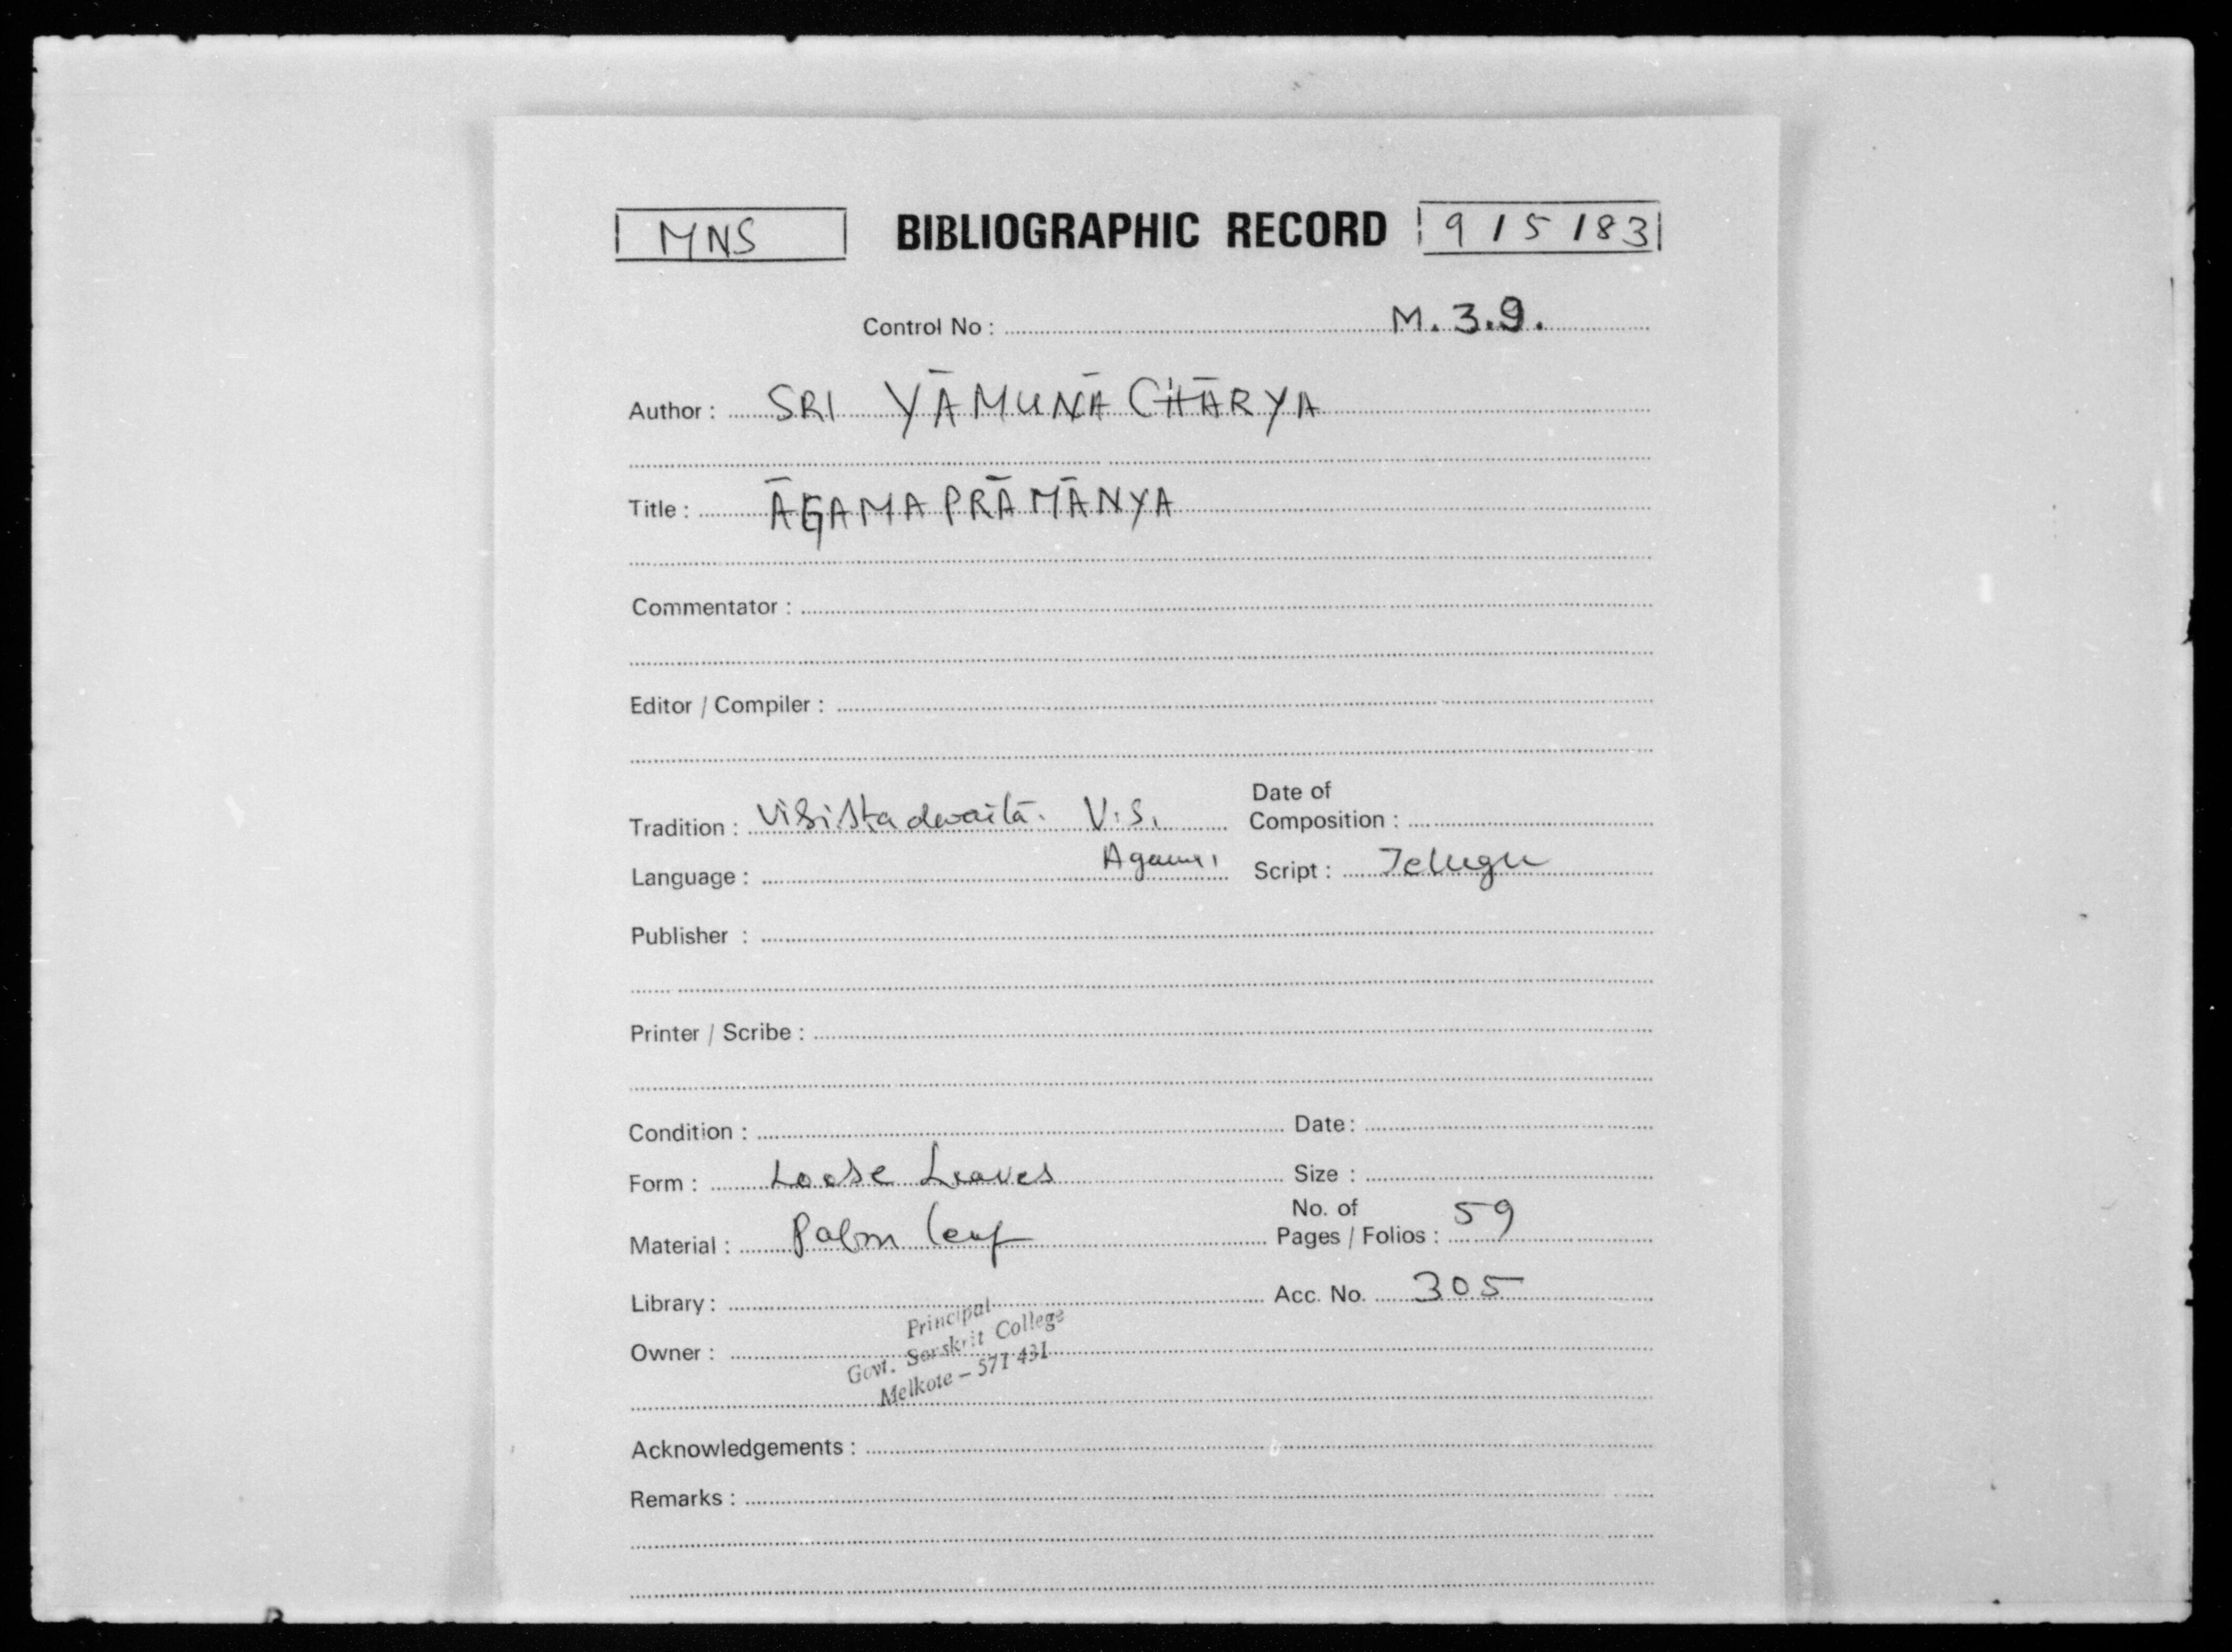 MNS BIBLIOGRAPHIC RECORD 915183
Control No : M.3.9.
Author : SRI YĀMUNĀCHĀRYA
Title : ĀGAMAPRĀMĀNYA
Commentator :
Editor / Compiler :
Tradition : Visistadwaita. V.S. Date of Composition :
Language : Agama Script : Telugu
Publisher :
Printer / Scribe :
Condition : Date :
Form : Loose Leaves Size :
Material : Palm leaf No. of Pages / Folios : 59
Library : Acc. No. 305
Principal
Owner : Govt. Sanskrit College
Melkote – 571 431
Acknowledgements :
Remarks :